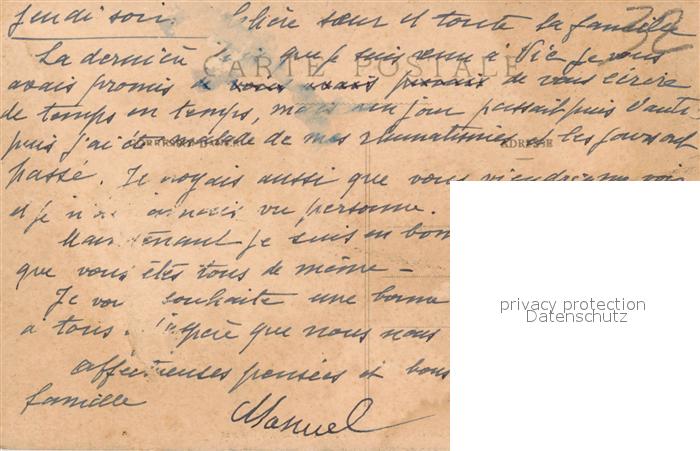 Jeudi soir. Chère sœur et toute la famille 32
La dernière fois que je suis venu à Vic je vous
CARTE POSTALE
avais promis de vous avais promis de vous écrire
de temps en temps, mais un jour passait puis l'autre
puis j'ai été malade de mes rhumatismes et les jours ont
CORRESPONDANCE ADRESSE
passé. Je croyais aussi que vous viendriez me voir
et je n'ai jamais vu personne.
Maintenant je suis en bon
que vous êtes tous de même –
privacy protection
Datenschutz
Je vous souhaite une bonne
à tous. J'espère que nous nous
affectueuses pensées et bons
famille
Manuel